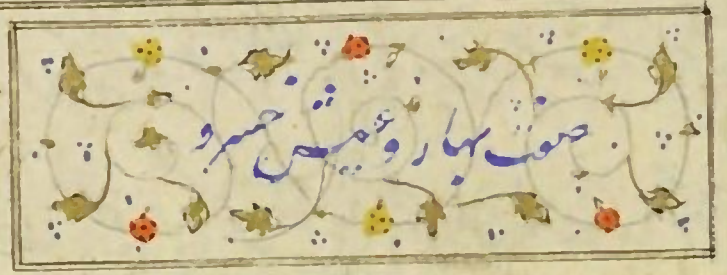 صفت بهار و عیش خسرو